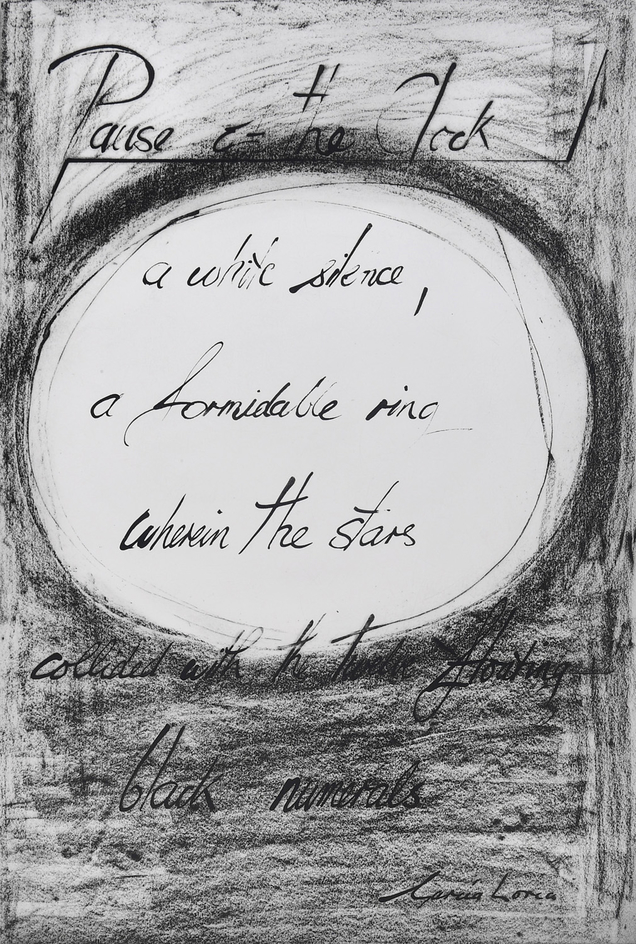 Pause of the Clock
a white silence,
a formidable ring
wherein the stars
collided with the twelve floating
black numerals
García Lorca